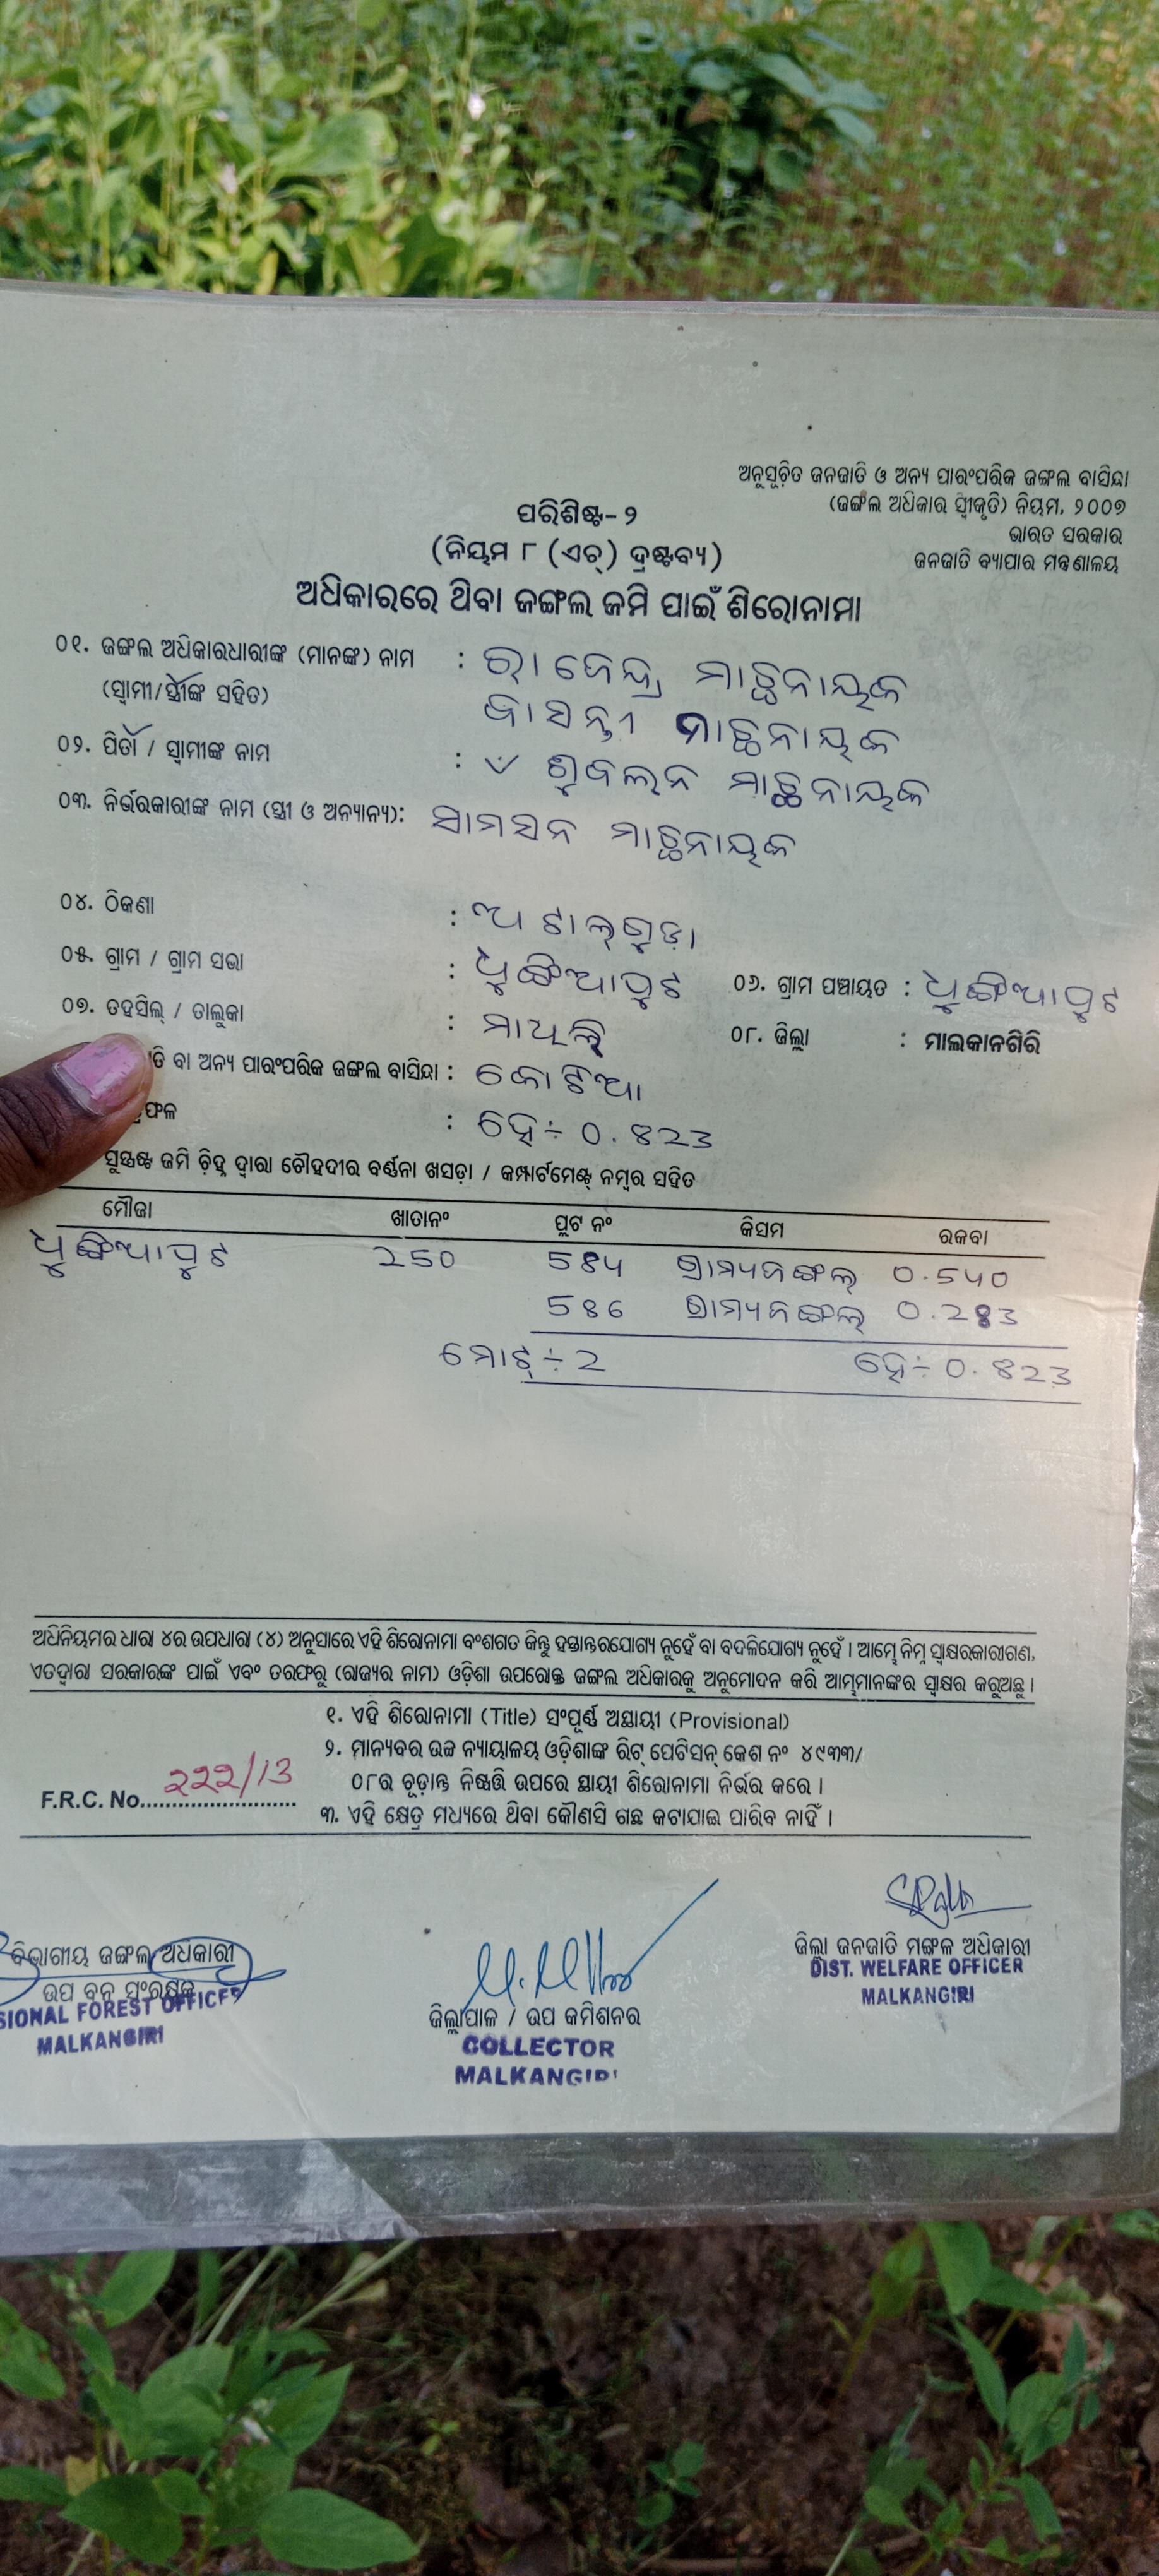 ଅନୁସୂଚିତ ଜନଜାତି ଓ ଅନ୍ୟ ପାରଂପରିକ ଜଙ୍ଗଲ ବାସିନ୍ଦା
(ଜଙ୍ଗଲ ଅଧିକାର ସ୍ୱୀକୃତି) ନିୟମ, ୨୦୦୭
ଭାରତ ସରକାର
ଜନଜାତି ବ୍ୟାପାର ମନ୍ତ୍ରଣାଳୟ
ପରିଶିଷ୍ଟ-୨
(ନିୟମ ୮ (ଏଚ୍) ଦ୍ରଷ୍ଟବ୍ୟ)
ଅଧିକାରରେ ଥିବା ଜଙ୍ଗଲ ଜମି ପାଇଁ ଶିରୋନାମା
୦୧. ଜଙ୍ଗଲ ଅଧିକାରଧାରୀଙ୍କ (ମାନଙ୍କ) ନାମ : ରାଜେନ୍ଦ୍ର ମାଛନାୟକ
(ସ୍ୱାମୀ/ସ୍ତ୍ରୀଙ୍କ ସହିତ) ବାସନ୍ତୀ ମାଛନାୟକ
୦୨. ପିତା / ସ୍ୱାମୀଙ୍କ ନାମ : ମାଛନାୟକ
୦୩. ନିର୍ଭରକାରୀଙ୍କ ନାମ (ସ୍ତ୍ରୀ ଓ ଅନ୍ୟାନ୍ୟ): ସାମସନ ମାଛନାୟକ
୦୪. ଠିକଣା : ଅଟାଲ୍‌ଗୁଡ଼ା
୦୫. ଗ୍ରାମ / ଗ୍ରାମ ସଭା : ଧୁଙ୍ଗିଆପୁଟ ୦୬. ଗ୍ରାମ ପଞ୍ଚାୟତ : ଧୁଙ୍ଗିଆପୁଟ
୦୭. ତହସିଲ୍ / ତାଲୁକା : ମାଥିଲି ୦୮. ଜିଲ୍ଲା : ମାଲକାନଗିରି
ବା ଅନ୍ୟ ପାରଂପରିକ ଜଙ୍ଗଲ ବାସିନ୍ଦା : କୋଟିଆ
: ହେ÷ 0.823
ସୁସ୍ପଷ୍ଟ ଜମି ଚ଼ିହ୍ନ ଦ୍ୱାରା ଚୌହଦୀର ବର୍ଣ୍ଣନା ଖସଡ଼ା / କମ୍ପାର୍ଟମେଣ୍ଟ୍ ନମ୍ବର ସହିତ
ମୌଜା ଖାତାନଂ ପ୍ଲଟ ନଂ କିସମ ରକବା
ଧୁଙ୍ଗିଆପୁଟ 250 584 ଗ୍ରାମ୍ୟଜଙ୍ଗଲ୍ 0.540
586 ଗ୍ରାମ୍ୟଜଙ୍ଗଲ୍ 0.283
ମୋଟ୍ ÷ 2 ହେ÷ 0.823
ଅଧିନିୟମର ଧାରା ୪ର ଉପଧାରା (୪) ଅନୁସାରେ ଏହି ଶିରୋନାମା ବଂଶଗତ କିନ୍ତୁ ହସ୍ତାନ୍ତରଯୋଗ୍ୟ ନୁହେଁ ବା ବଦଳିଯୋଗ୍ୟ ନୁହେଁ । ଆମ୍ଭେ ନିମ୍ନ ସ୍ୱାକ୍ଷରକାରୀଗଣ,
ଏତଦ୍ଦ୍ୱାରା ସରକାରଙ୍କ ପାଇଁ ଏବଂ ତରଫରୁ (ରାଜ୍ୟର ନାମ) ଓଡ଼ିଶା ଉପରୋକ୍ତ ଜଙ୍ଗଲ ଅଧିକାରକୁ ଅନୁମୋଦନ କରି ଆମ୍ଭମାନଙ୍କର ସ୍ୱାକ୍ଷର କରୁଅଛୁ ।
୧. ଏହି ଶିରୋନାମା (Title) ସଂପୂର୍ଣ୍ଣ ଅସ୍ଥାୟୀ (Provisional)
୨. ମାନ୍ୟବର ଉଚ୍ଚ ନ୍ୟାୟାଳୟ ଓଡ଼ିଶାଙ୍କ ରିଟ୍ ପେଟିସନ୍ କେଶ ନଂ ୪୯୩୩/
୦୮ର ଚୂଡ଼ାନ୍ତ ନିଷ୍ପତ୍ତି ଉପରେ ସ୍ଥାୟୀ ଶିରୋନାମା ନିର୍ଭର କରେ ।
F.R.C. No. 222/13
୩. ଏହି କ୍ଷେତ୍ର ମଧ୍ୟରେ ଥିବା କୌଣସି ଗଛ କଟାଯାଇ ପାରିବ ନାହିଁ ।
ବିଭାଗୀୟ ଜଙ୍ଗଲ ଅଧିକାରୀ
ଉପ ବନ ସଂରକ୍ଷକ
SIONAL FOREST OFFICER
MALKANGIRI
ଜିଲ୍ଲାପାଳ / ଉପ କମିଶନର
COLLECTOR
MALKANGIRI
ଜିଲ୍ଲା ଜନଜାତି ମଙ୍ଗଳ ଅଧିକାରୀ
DIST. WELFARE OFFICER
MALKANGIRI